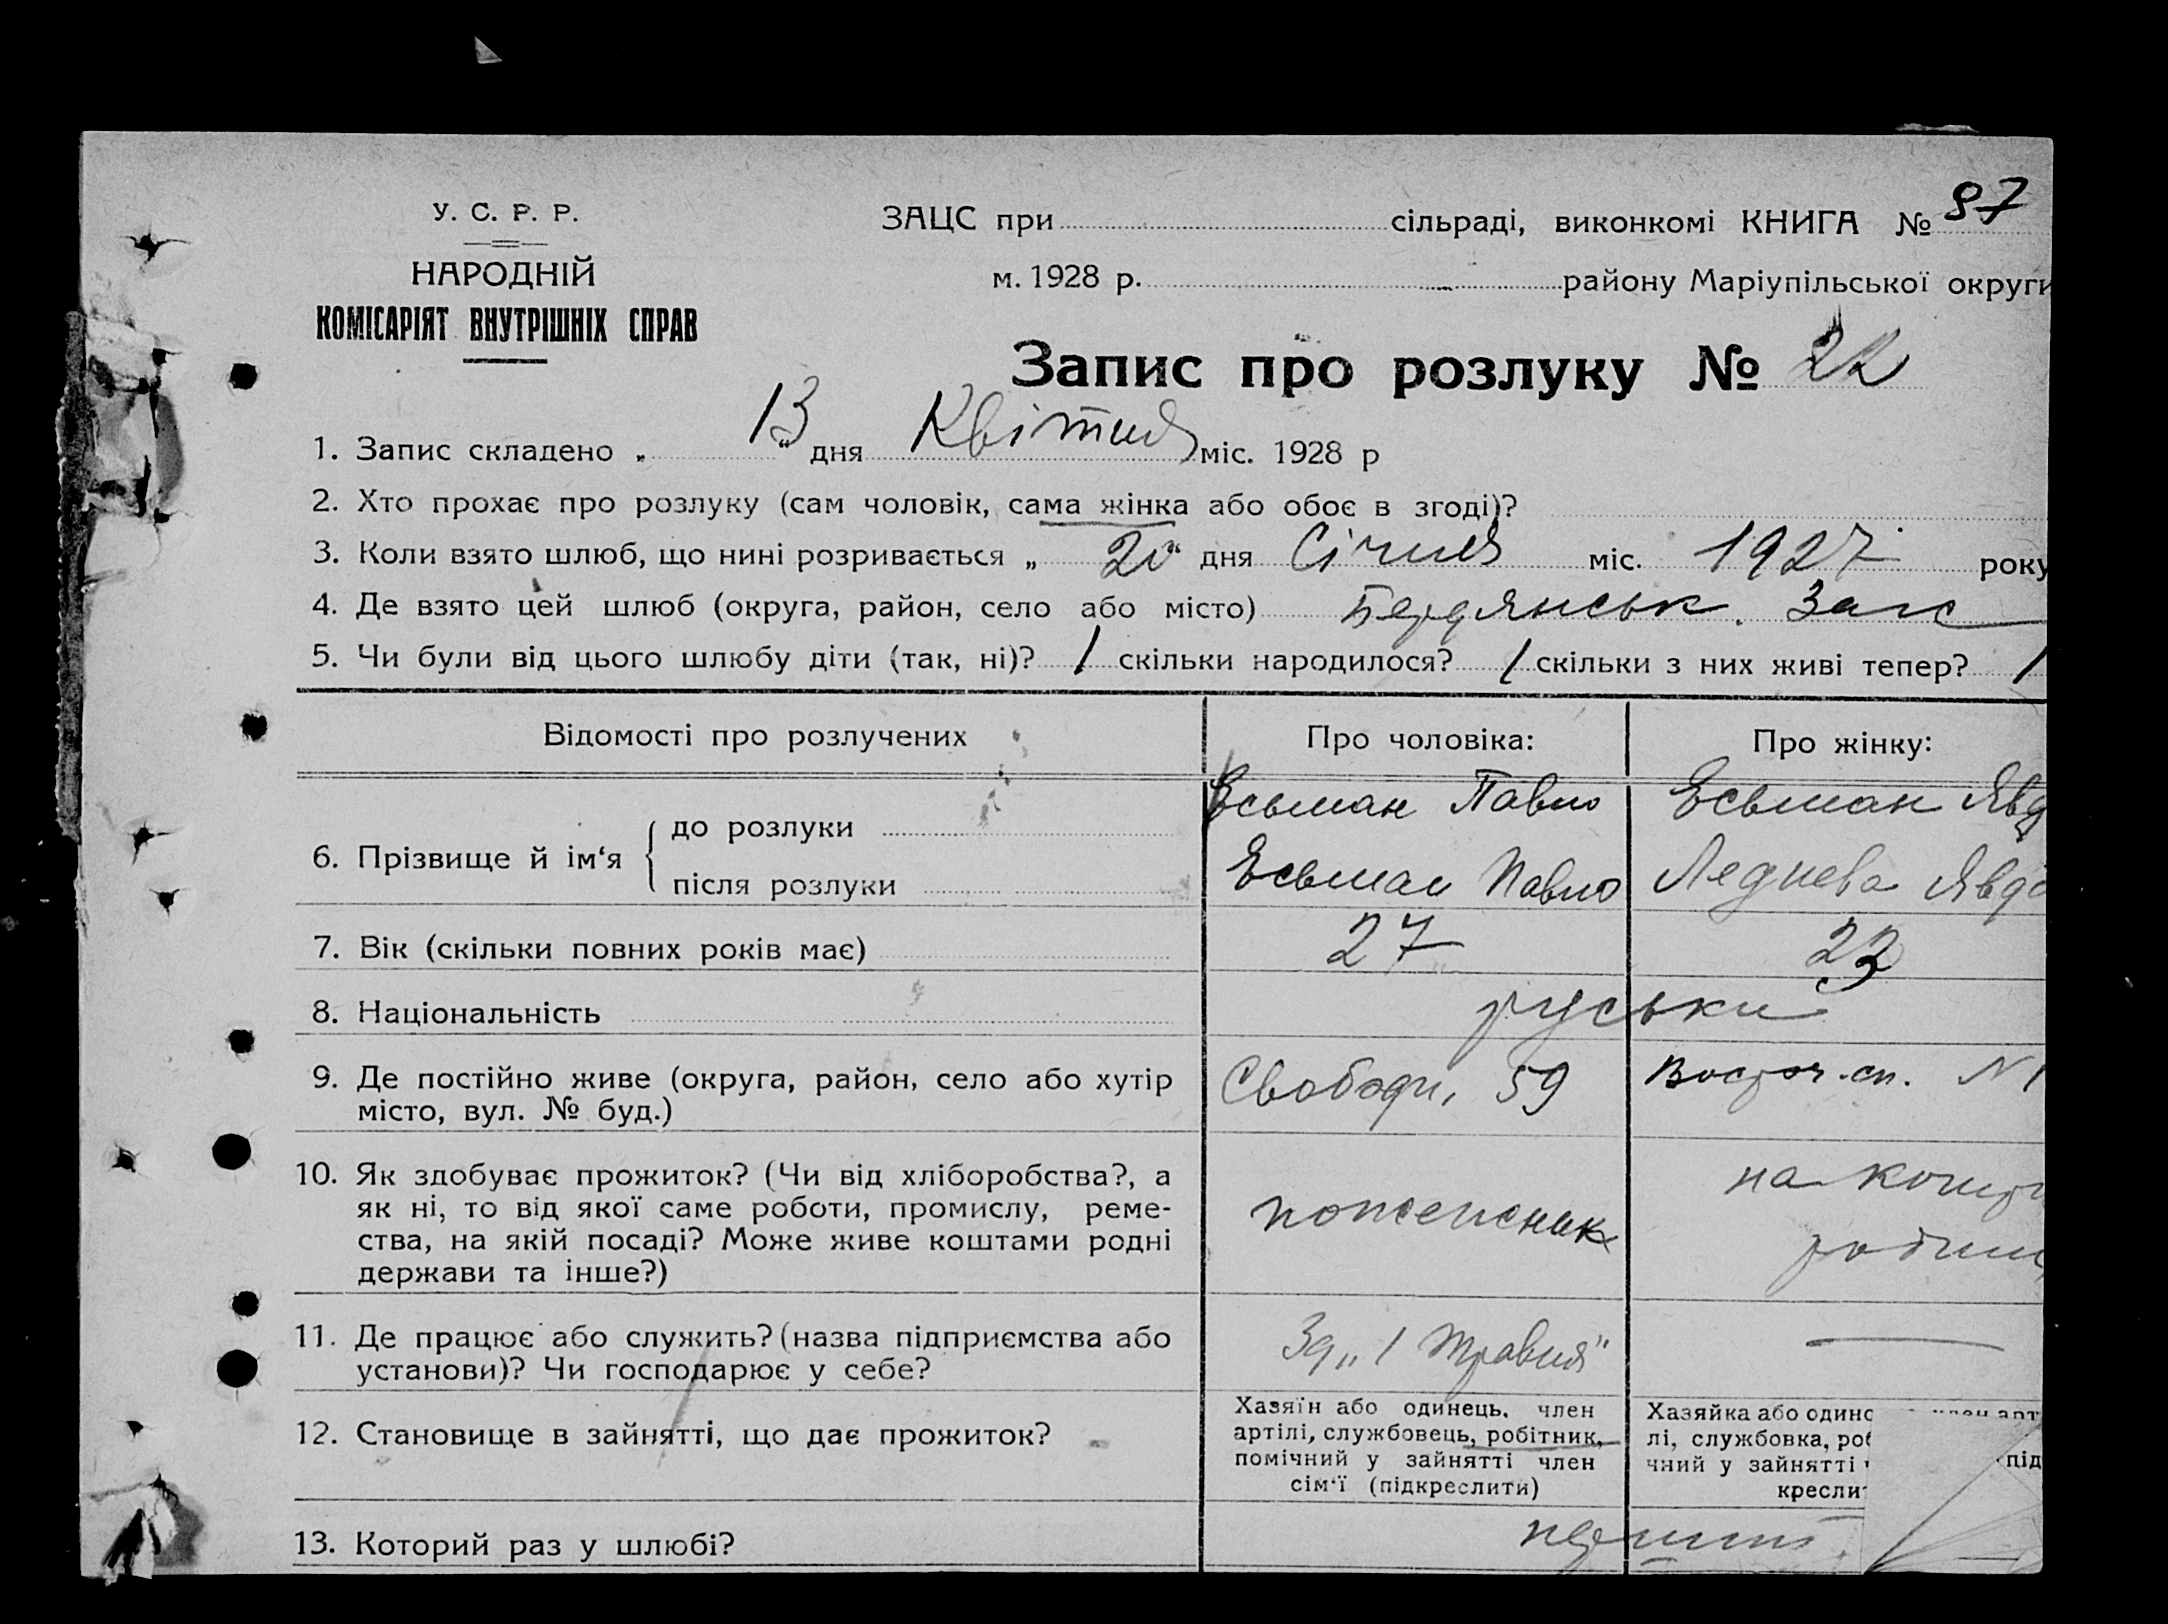 У. С. Р. Р.
НАРОДНІЙ
КОМІСАРІЯТ ВНУТРІШНІХ СПРАВ
ЗАЦС при сільраді, виконкомі КНИГА № 87
м. 1928 р. району Маріупільської округи
Запис про розлуку № 22
1. Запис складено „ 13 " дня Квітня міс. 1928 р
2. Хто прохає про розлуку (сам чоловік, сама жінка або обоє в згоді)?
3. Коли взято шлюб, що нині розривається „ 20 " дня Січня міс. 1927 року
4. Де взято цей шлюб (округа, район, село або місто) Бердянськ. Загс
5. Чи були від цього шлюбу діти (так, ні)? 1 скільки народилося? 1 скільки з них живі тепер? 1
Відомості про розлучених Про чоловіка: Про жінку:
6. Прізвище й ім'я
до розлуки Есьман Павло Есьман Явд
після розлуки Есьман Павло Леднева Явдо
7. Вік (скільки повних років має) 27 23
8. Національність руськи
9. Де постійно живе (округа, район, село або хутір
місто, вул. № буд.)
Свободи, 59
Восточ. сп. N 1
10. Як здобуває прожиток? (Чи від хліборобства?, а
як ні, то від якої саме роботи, промислу, реме-
ства, на якій посаді? Може живе коштами родні
держави та інше?)
на кошти
родин
11. Де працює або служить? (назва підприємства або
установи)? Чи господарює у себе?
Зд „1 Травня"
12. Становище в зайнятті, що дає прожиток?
Хазяїн або одинець, член
артілі, службовець, робітник,
помічний у зайнятті член
сім'ї (підкреслити)
Хазяйка або одино член арт
лі, службовка, роб
чний у зайнятті під
кресли
13. Которий раз у шлюбі?